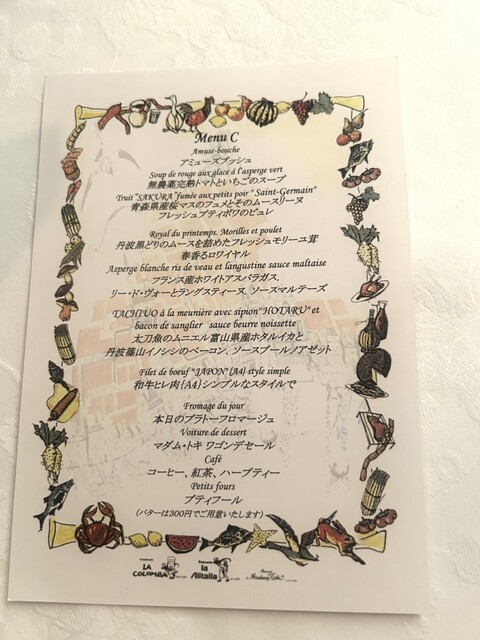 Menu C
Amuse-bouche
アミューズブッシュ
Soup de rouge aux glace à l'asperge vert
無農薬完熟トマトといちごのスープ
Truit "SAKURA" fumée aux petits poir " Saint-Germain"
青森県産桜マスのフュメとそのムースリーヌ
フレッシュプティポワのピュレ
Royal du printemps. Morilles et poulet
丹波黒どりのムースを詰めたフレッシュモリーユ茸
春香るロワイヤル
Asperge blanche ris de veau et langustine sauce maltaise
フランス産ホワイトアスパラガス.
リー・ド・ヴォーとラングスティーヌ. ソースマルテーズ
TACHIUO à la meunière avec sipion"HOTARU" et
bacon de sanglier sauce beurre noissette
太刀魚のムニエル富山県産ホタルイカと
丹波篠山イノシシのベーコン. ソースブールノアゼット
Filet de boeuf "JAPON" {A4} style simple
和牛ヒレ肉{A4}シンプルなスタイルで
Fromage du jour
本日のプラトーフロマージュ
Voiture de dessert
マダム・トキ ワゴンデセール
Café
コーヒー、紅茶、ハーブティー
Petits fours
プティフール
(バターは300円でご用意いたします)
LA COLOMBA
la Alitalia